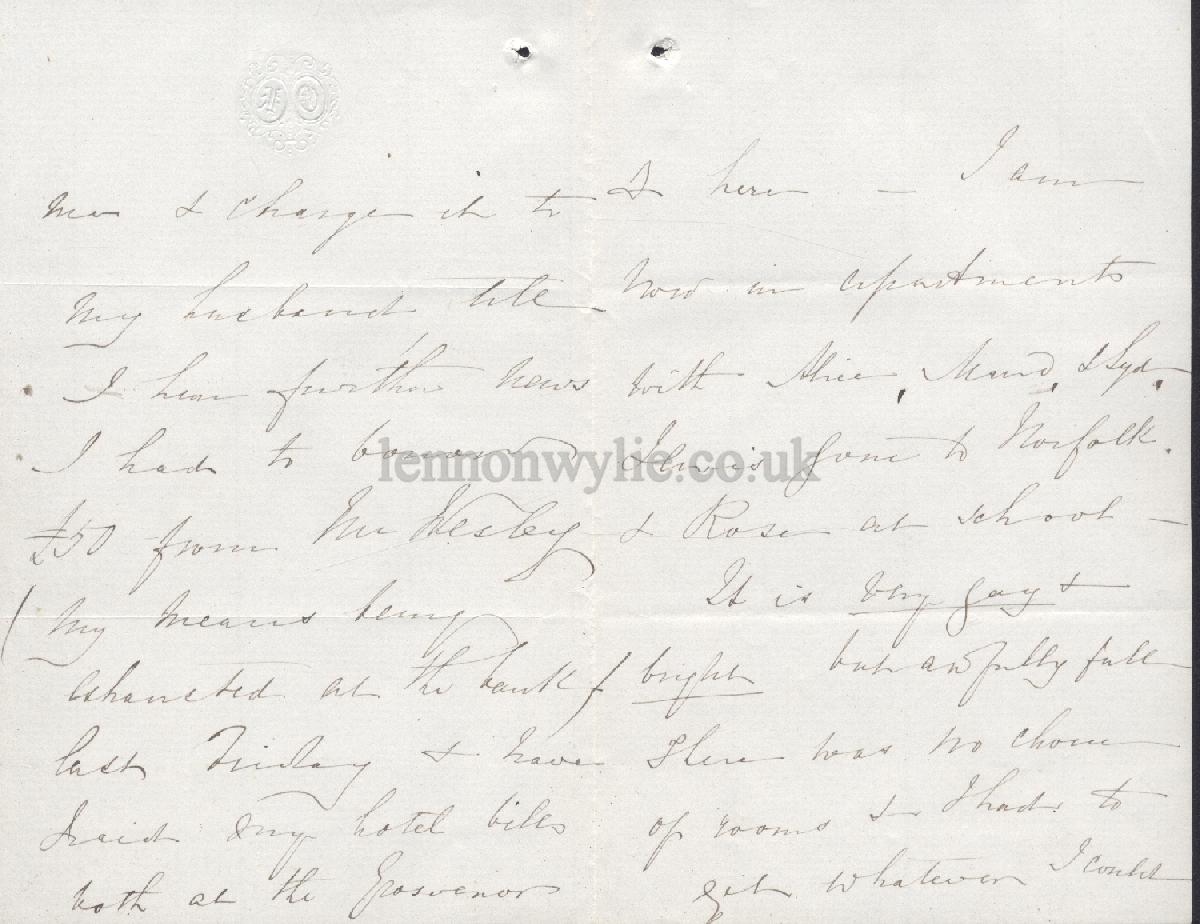 me & charge it to
my husband till
I hear further news
I had to borrow
£50 from Mr Wesley
(my means being
exhausted at the bank)
last Friday & have
paid my hotel bills
both at the Grosvenor
& here – I am
now in apartments
with Alice, Maud, & Syd.
gone to Norfolk.
& Rose at school –
It is very gay &
bright but awfully full
there was no choice
of rooms & I had to
get whatever I could
lennonwylie.co.uk